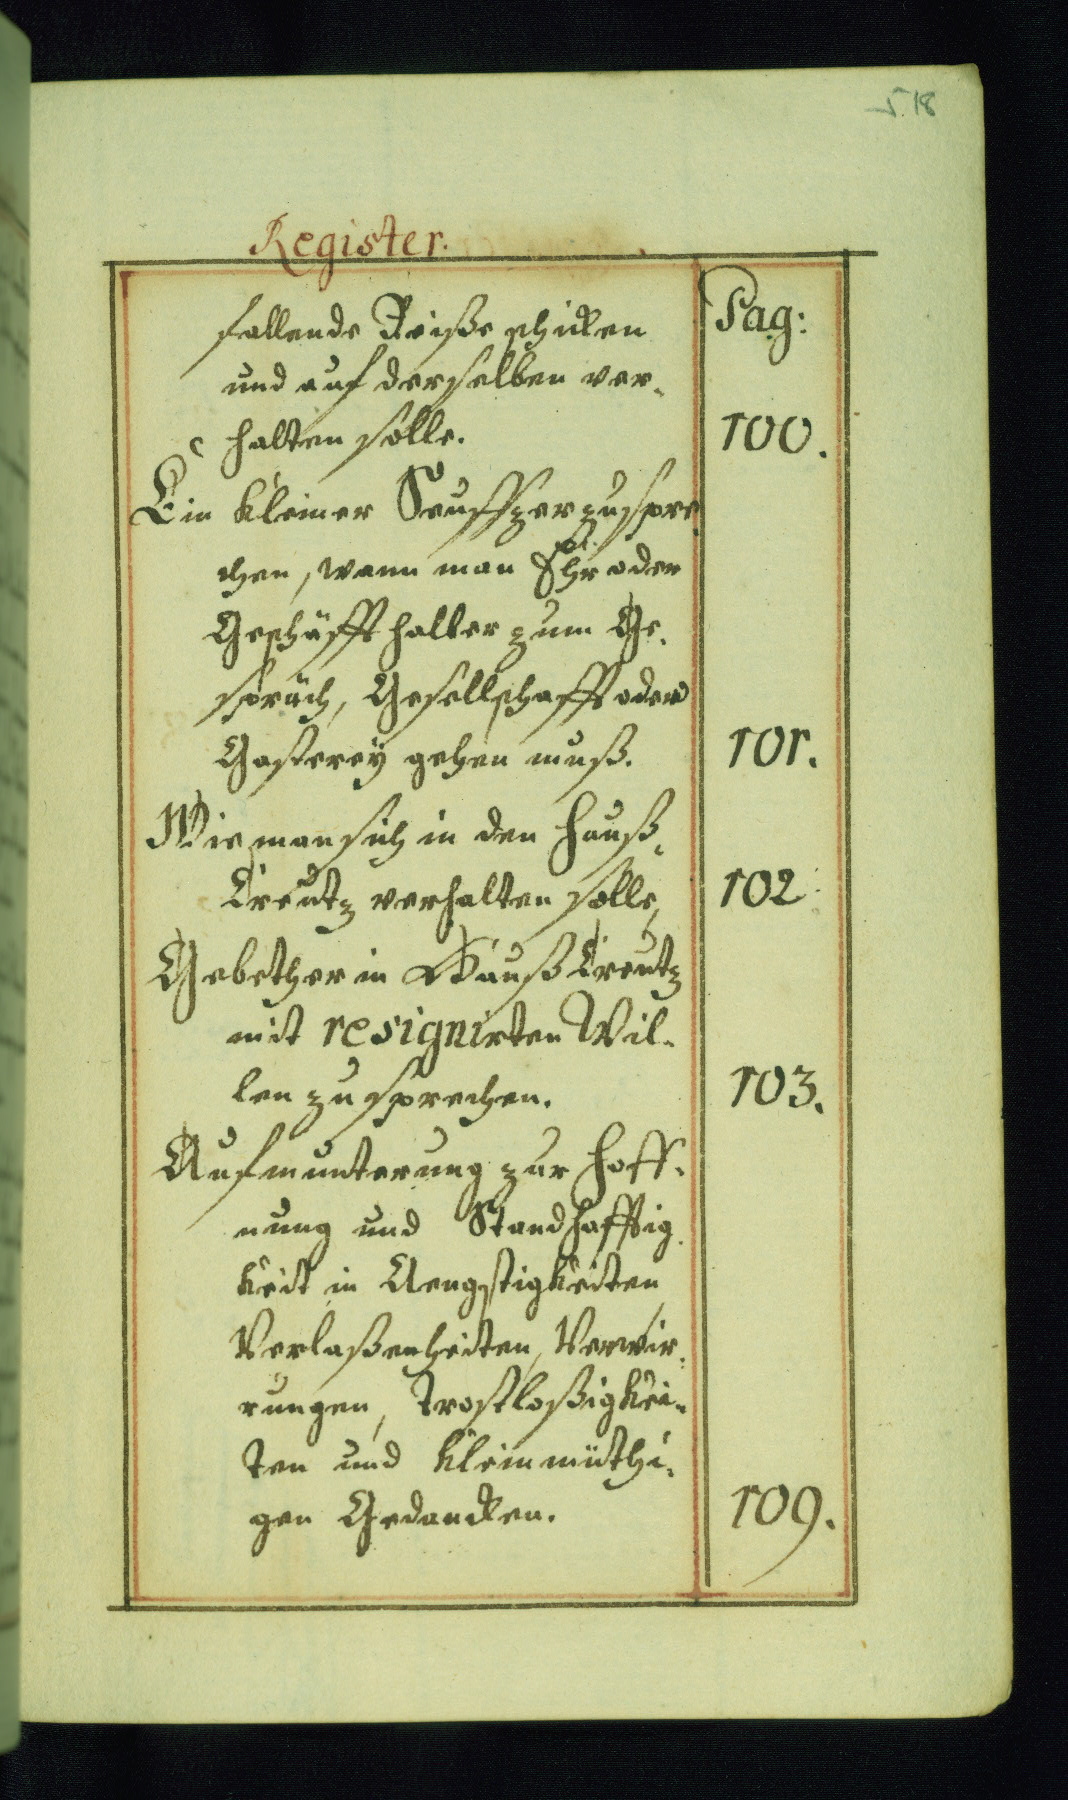 Register.
Pag:
fallende Reiße schicken
und auf derselben ver-
halten solle. 100.
Ein kleiner Seuffzer zu spre-
chen, wann man Ehr oder
Geschäfft halber zum Ge-
spräch, Gesellschafft oder
Gasterey gehen muß. 101.
Wie man sich in den Hauß-
Creutz verhalten solle, 102
Gebether in Hauß Creutz
mit resignirten Wil-
len zu sprechen. 103.
Aufmunterung zur Hoff-
nung und Standhafftig
keit in Aengstigkeiten
Verlaßenheiten, Verwir-
rungen, Trostloßigkei-
ten und kleinmüthi-
gen Gedancken. 109.